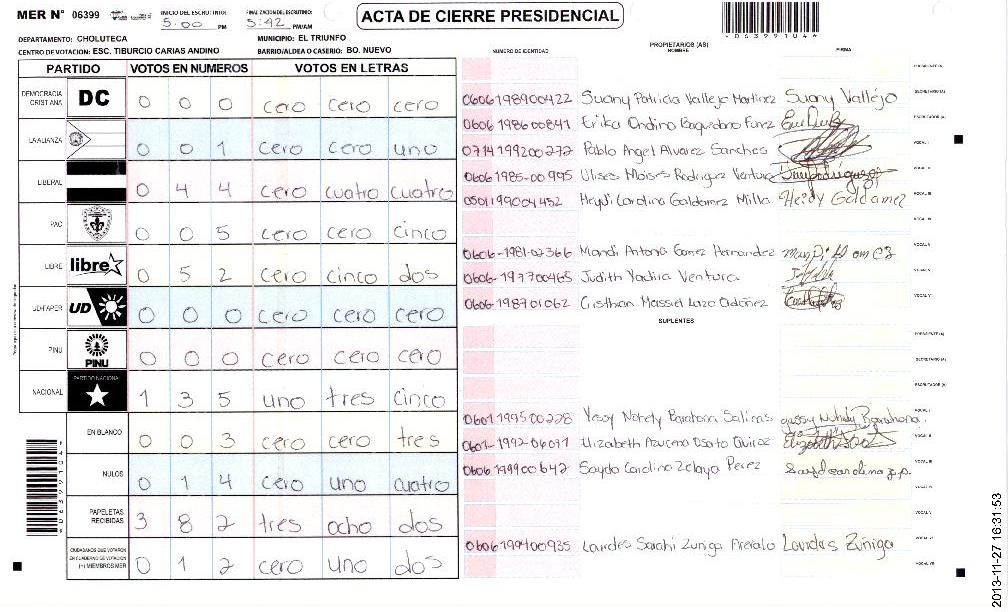 MER N° 06399 INICIO DEL ESCRUTINIO: 5:00 PM FINALIZACION DEL ESCRUTINIO: 5:42 PM/AM
ACTA DE CIERRE PRESIDENCIAL
*06399104*
DEPARTAMENTO: CHOLUTECA MUNICIPIO: EL TRIUNFO
CENTRO DE VOTACION: ESC. TIBURCIO CARIAS ANDINO BARRIO/ALDEA O CASERIO: BO. NUEVO
PARTIDO VOTOS EN NUMEROS VOTOS EN LETRAS
DEMOCRACIA CRISTIANA DC 0 0 0 cero cero cero
LA ALIANZA 0 0 1 cero cero uno
LIBERAL 0 4 4 cero cuatro cuatro
PAC 0 0 5 cero cero cinco
LIBRE libre 0 5 2 cero cinco dos
UD-FAPER UD 0 0 0 cero cero cero
PINU PINU 0 0 0 cero cero cero
NACIONAL PARTIDO NACIONAL 1 3 5 uno tres cinco
EN BLANCO 0 0 3 cero cero tres
NULOS 0 1 4 cero uno cuatro
PAPELETAS RECIBIDAS 3 8 2 tres ocho dos
CIUDADANOS QUE VOTARON EN CUADERNO DE VOTACION (+) MIEMBROS MER 0 1 2 cero uno dos
NUMERO DE IDENTIDAD PROPIETARIOS (AS) NOMBRE FIRMA
PRESIDENTE (A)
0606198900422 Suany Patricia Vallejo Martinez Suany Vallejo SECRETARIO (A)
0606 198600841 Erika Ondina Baquedano Funez ESCRUTADOR (A)
0714199200272 Pablo Angel Alvarez Sanches VOCAL I
0606 1985-00995 Ulises Moises Rodriguez Ventura VOCAL II
0501199004452 Heydi Carolina Galdamez Milla Heidy Galdamez VOCAL III
VOCAL IV
0606-1981-02366 Hernandez VOCAL V
0606-197700465 Judith Yadira Ventura
0606-198701062 Cristhian Massiel Lazo Ordoñez VOCAL VI
SUPLENTES
PRESIDENTE (A)
SECRETARIO (A)
ESCRUTADOR (A)
0601199500228 Yessy Nohely Barahona Salinas VOCAL I
0601-1992-06077 Elizabeth Azucena VOCAL II
0606 199900642 Sayda Carolina Zelaya Perez VOCAL III
VOCAL IV
VOCAL V
0606199400935 Lourdes Sarahi Zuniga Lourdes Zuniga VOCAL VI
VOCAL VII
2013-11-27 16:31:53